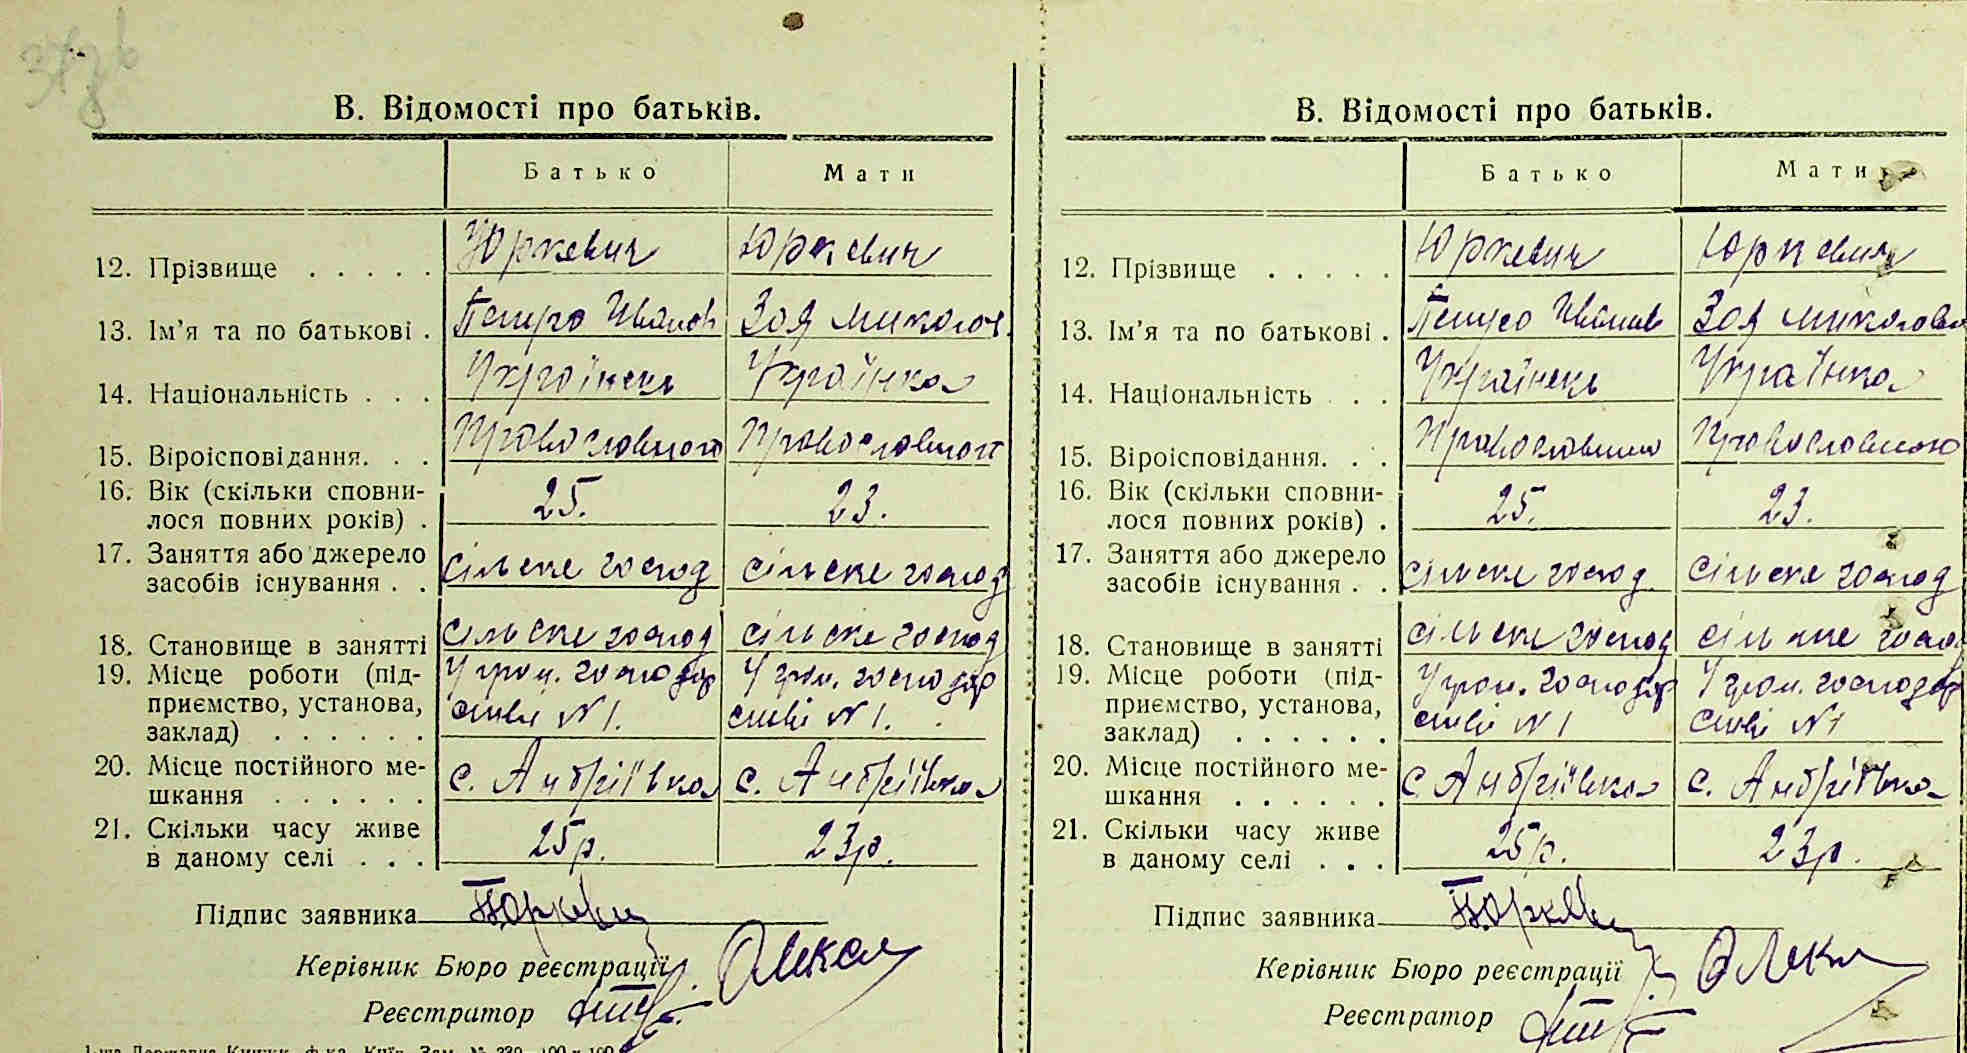 В. Відомості про батьків.
Батько Мати
12. Прізвище . . . . . Юркевич Юркевич
13. Ім'я та по батькові . Петро Іванов Зоя Миколов.
14. Національність . . . Українець Українка
15. Віроісповідання. . . Православної Православної
16. Вік (скільки сповни-
лося повних років) . 25. 23.
17. Заняття або джерело
засобів існування . . сільске господ сільске господ
18. Становище в занятті сільске господ сільске господ
19. Місце роботи (під-
приємство, установа,
заклад) . . . . . .
У гром. господар У гром. господар
стві №1. стві №1.
20. Місце постійного ме-
шкання . . . . . . с. Андріївка с. Андріївка
21. Скільки часу живе
в даному селі . . . 25р. 23р.
Підпис заявника
Керівник Бюро реєстрації
Реєстратор
1-ша Державна Книжк. ф-ка, Київ. Зам. № 339
В. Відомості про батьків.
Батько Мати
12. Прізвище . . . . . Юркевич Юркевич
13. Ім'я та по батькові . Петро Іванов Зоя Миколовн
14. Національність . . . Українець Українка
15. Віроісповідання. . . Православної Православною
16. Вік (скільки сповни-
лося повних років) . 25. 23.
17. Заняття або джерело
засобів існування . . сільске господ сільске господ
18. Становище в занятті сільске господ сільске госпо
19. Місце роботи (під-
приємство, установа,
заклад) . . . . . .
У гром. господар У гром. господар
стві №1 стві №1
20. Місце постійного ме-
шкання . . . . . . с Андріївка с. Андріївка
21. Скільки часу живе
в даному селі . . . 25р. 23р.
Підпис заявника
Керівник Бюро реєстрації
Реєстратор